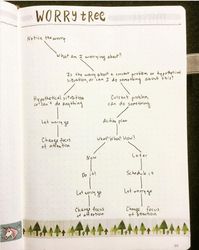 WORRY tree
Notice the worry
What am I worrying about?
Is the worry about a current problem or hypothetical
situation, or can I do something about this?
Hypothetical situation
can't do anything
Current problem
can do something
Let worry go
Action plan
Change focus
of attention
What? When? How?
Now
Later
Do it
Schedule it
Let worry go
Let worry go
Change focus
of attention
Change focus
of attention